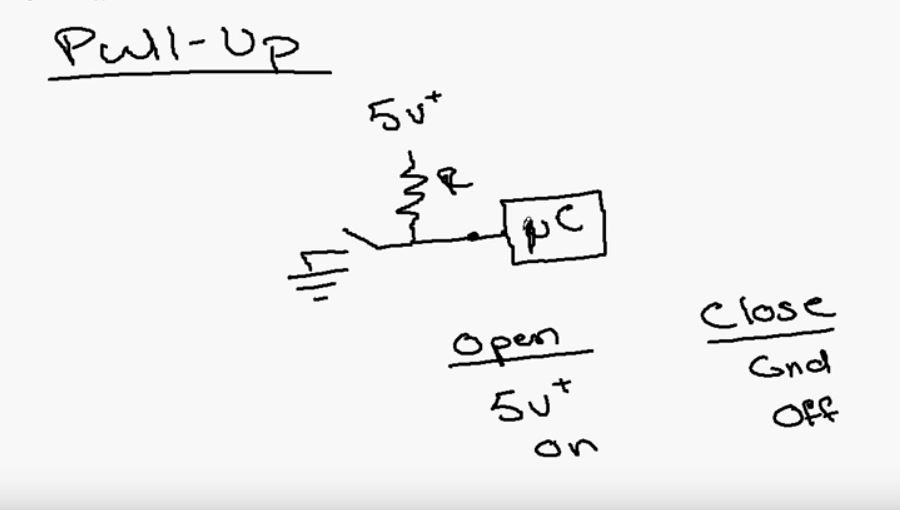 Pull-Up
5v+
R
μC
Open
5v+
on
Close
Gnd
Off